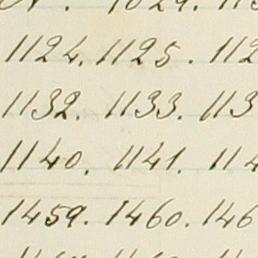 1124. 1125. 112
1132. 1133. 113
1140. 1141. 114
1459. 1460. 146